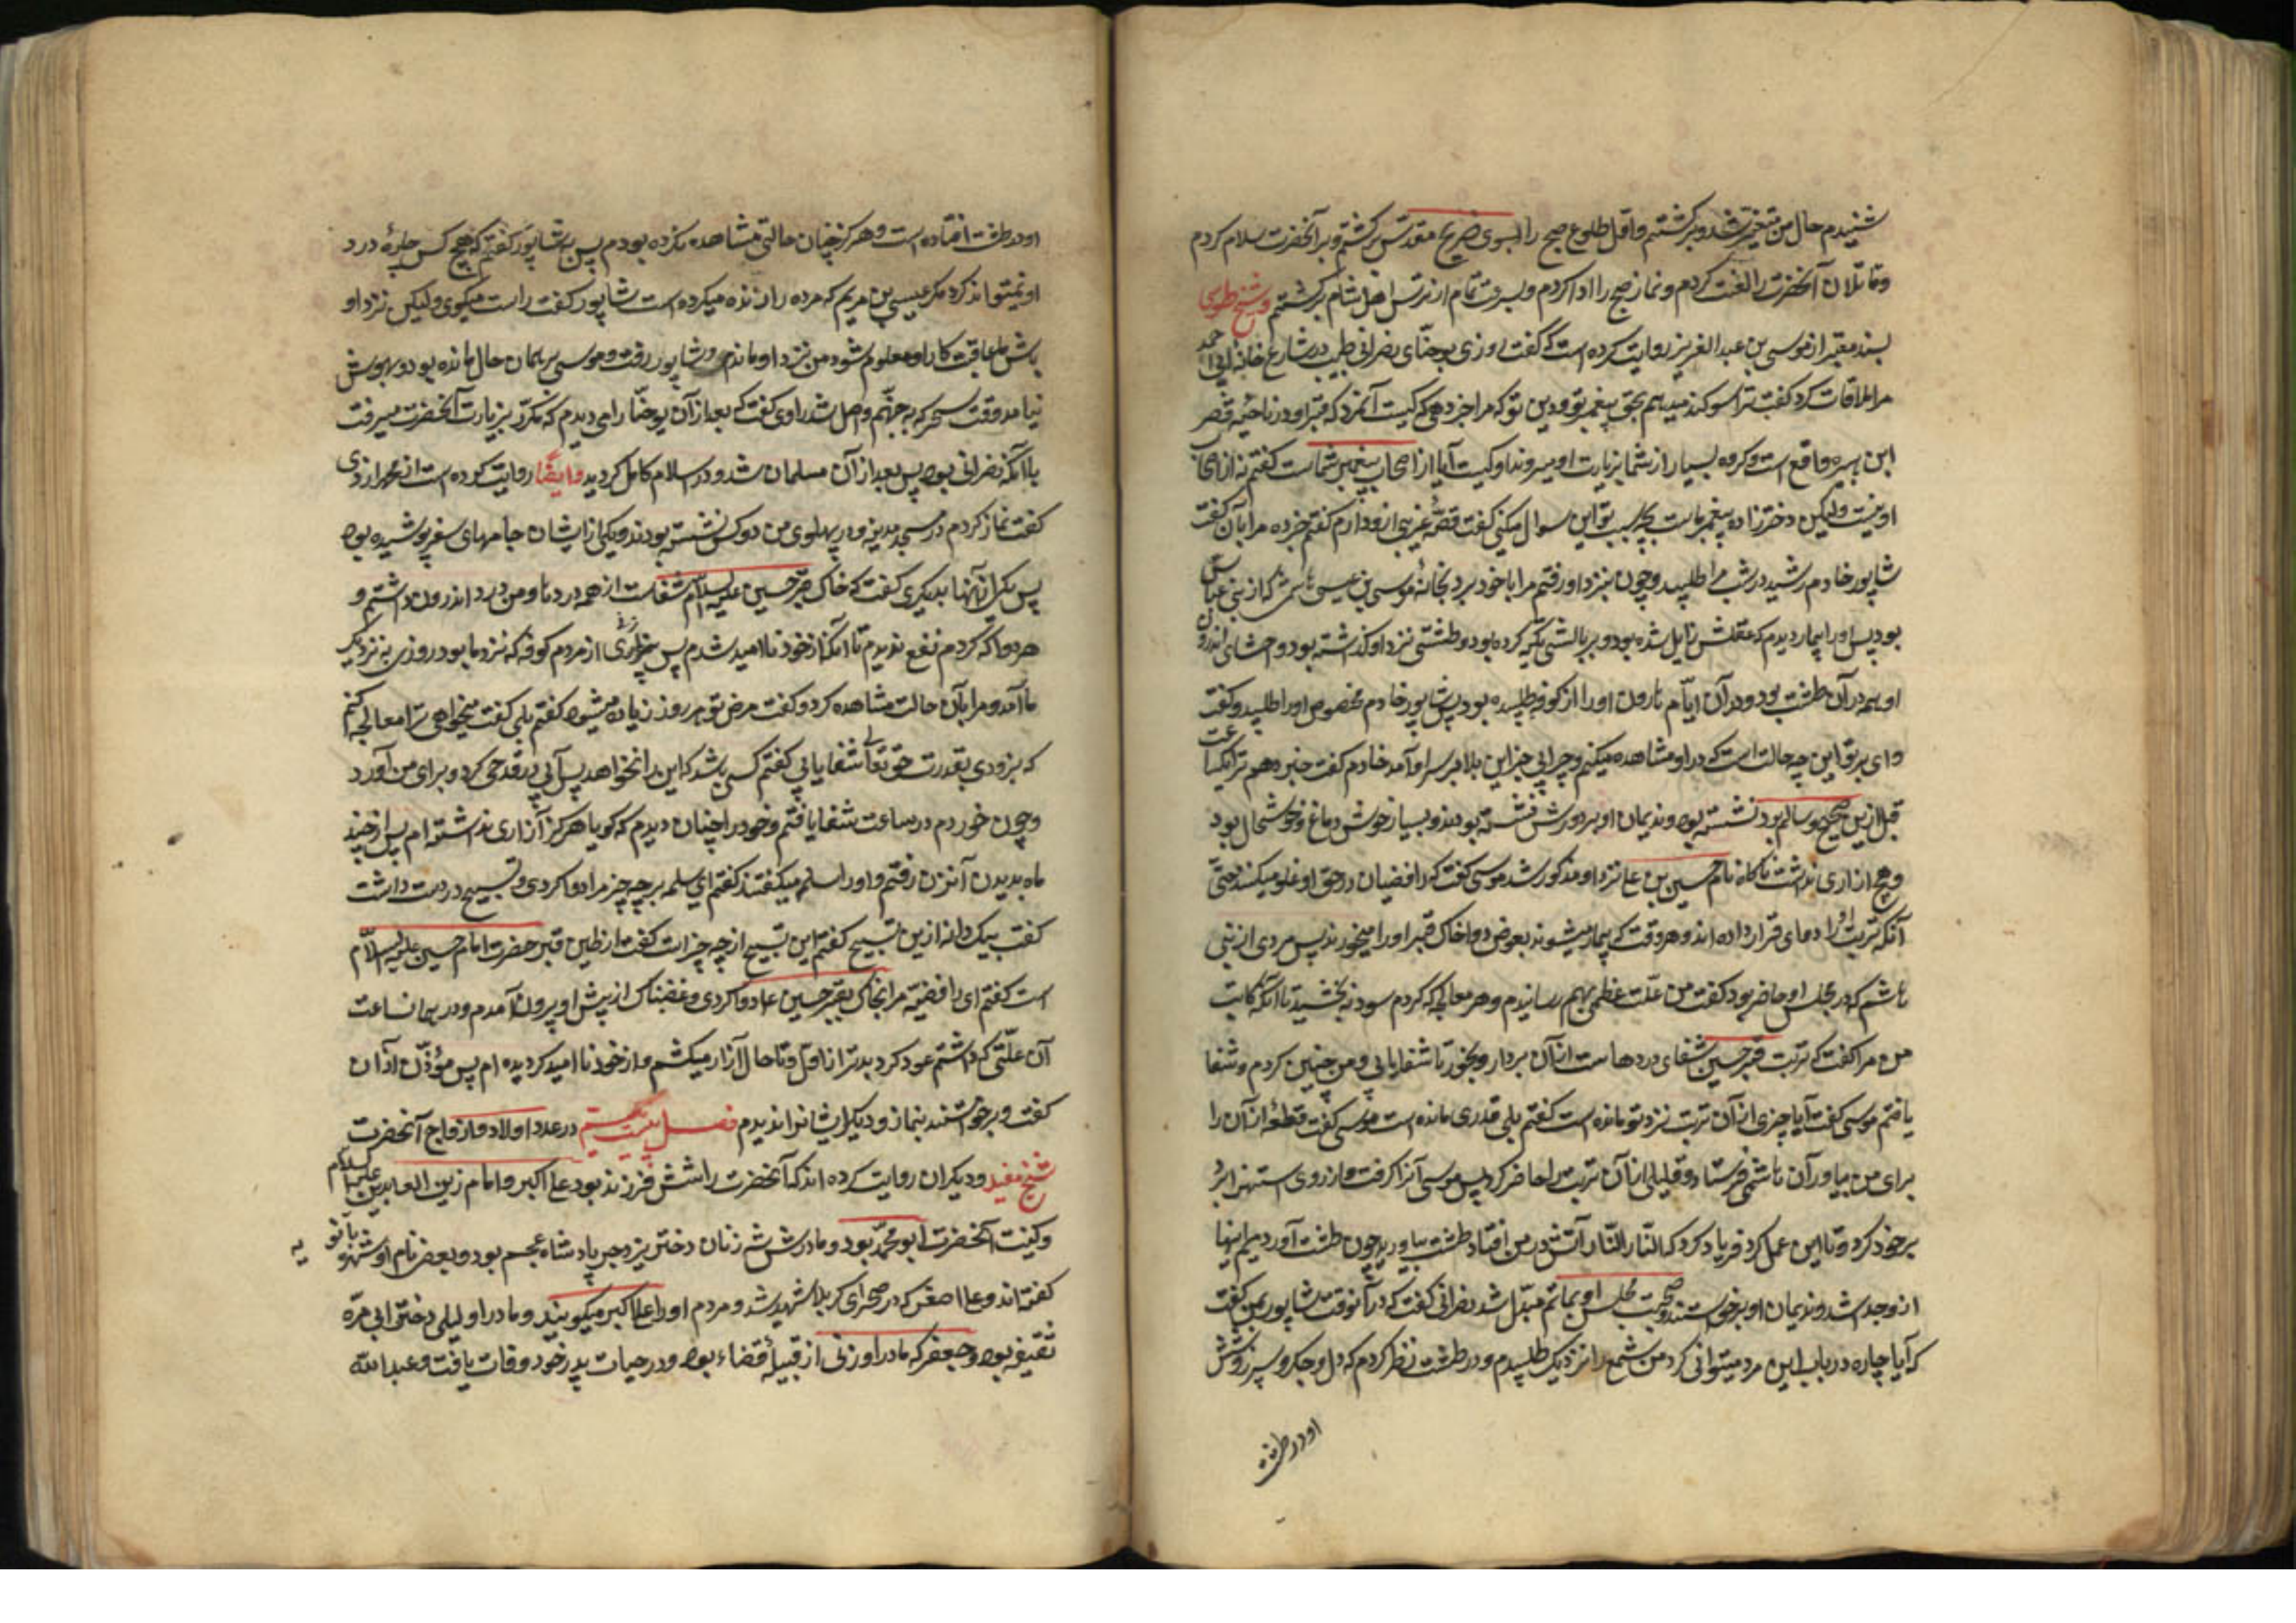 شنیدم حال من متغیر شد و برگشتم و اول طلوع صبح را بسوی ضریح مقدس برگشتم و بر آنحضرت سلام کردم
و قاتلان آنحضرت را لعنت کردم و نماز صبح را ادا کردم و بسرعت تمام از ترس اهل شام برگشتم و شیخ طوسی
بسند معتبر از موسی بن عبد العزیز روایت کرده است که گفت روزی یوحنّای نصرانی طبیب در شارع خانه ابی احمد
مرا ملاقات کرد گفت ترا سوکند میدهم بحق پیغمبر تو و دین تو که مرا خبر دهی که کیست آنمرد که قبر او در ناحیه قصر
ابن هبیره واقع است و کروه بسیار از شما بزیارت او میروند او کیست آیا از اصحاب پیغمبر شماست گفتم نه از اصحاب
او نیست ولیکن دخترزاده پیغمبر ماست بچه سبب تو این سوال میکنی گفت قصّهٔ غریبی ازو دارم گفتم خبر ده مرا بآن گفت
شاپور خادم رشید در شب مرا طلبید و چون بنزد او رفتم مرا با خود برد بخانهٔ موسی بن عیسی هاشمی که از بنی عباس
بود پس او را بیمار دیدم که عقلش زایل شده بود و بر بالشی تکیه کرده بود و طشتی نزد او کذاشته بود و احشای اندرون
او همه در آن طشت بود و در آن ایّام هارون او را از کوفه طلبیده بود پس شاپور خادم مخصوص او را طلبید و گفت
وای بر تو این چه حالت است که در او مشاهده میکنم و چرا این بلا بر سر او آمد خادم گفت خبر دهم ترا یکساعت
قبل ازین صحیح و سالم بود نشسته بود و ندیمان او بر دورش نشسته بودند و بسیار خوش دماغ و خوشحال بود
و هیچ ازاری نداشت ناکاه نام حسین بن علی نزد او مذکور شد موسی گفت که رافضیان در حق او غلو میکنند حتّی
آنکه تربت او را دوای قرار داده اند و هر وقت که بیمار میشوند بعوض دوا خاک قبر او را میخورند پس مردی از بنی
هاشم که در مجلس او حاضر بود گفت من علّت عظیمی بهم رسانیدم و هر معالجه که کردم سود نه بخشید تا آنکه کاتب
من مرا گفت که تربت قبر حسین شفای دردهاست از آن بردار و بخور تا شفا یابی و من چنین کردم و شفا
یافتم موسی گفت آیا چیزی از آن تربت نزد تو مانده است گفتم بلی قدری مانده است موسی گفت قطعهٔ از آن را
برای من بیاور آن هاشمی فرستاد و قلیلی از آن تربت را حاضر کرد پس موسی آنرا گرفت و از روی استهزا بر
بر خود کرد و تا این عمل کرد فریاد کرد که النّار النّار آتش در من افتاد طشت بیاورید چون طشت آوردیم اینها
ازو جدا شد و ندیمان او برخواستند و صحبت مجلس او بماتم مبدّل شد نصرانی گفت که در آنوقت شاپور بمن گفت
که آیا چاره در باب این مرد میتوانی کرد من شمع را نزدیک طلبیدم و در طشت نظر کردم که دل و جکر و سپرز و شش
او در طشت
او در طشت افتاده است و هرکز چنان حالتی مشاهده نکرده بودم پس بشاپور گفتم که هیچ کس چارهٔ درد
او نمیتواند کرد مکر عیسی بن مریم که مرده را زنده میکرده است شاپور گفت راست میکوی ولیکن نزد او
باش تا عاقبت کار او معلوم شود من نزد او ماندم و شاپور رفت و موسی بر همان حال مانده بود و بهوش
نیامد و وقت سحر که به جهنّم واصل شد راوی گفت که بعد از آن یوحنّا را می دیدم که مکرّر بزیارت آنحضرت میرفت
با آنکه نصرانی بود پس بعد از آن مسلمان شد و در اسلام کامل کردید و ایضا روایت کرده است از محمد ازدی
گفت نماز کردم در مسجد مدینه و در پهلوی من دو کس نشسته بودند و یکی از ایشان جامهای سفر پوشیده بود
پس یکی از آنها بدیکری گفت که خاک قبر حسین علیه السلام شفاست از همه دردها و من درد اندرون داشتم و
هر دوا که کردم نفع ندیدم تا آنکه از خود ناامید شدم پس پیر زنی از مردم کوفه که نزد ما بود روزی به نزدیک
ما آمد و مرا بآن حالت مشاهده کرد و گفت مرض تو هر روز زیاده میشود گفتم بلی گفت میخواهی ترا معالجه کنم
که بزودی بقدرت حق تعالی شفا یابی گفتم کسی باشد که این را نخواهد پس آبی در قدحی کرد و برای من آورد
و چون خوردم در ساعت شفا یافتم و خود را چنان دیدم که کویا هرکز آزاری نداشته ام پس از چند
ماه بدیدن آنزن رفتم و او را سلمه میکفتند گفتم ای سلمه بر چه چیز مرا دوا کردی و تسبیح در دست داشت
گفت بیک دانه ازین تسبیح گفتم این تسبیح از چه چیز است گفت از طین قبر حضرت امام حسین علیه السلام
است گفتم ای رافضیّه مرا بخاک قبر حسین علی دوا کردی و غضبناک از پیش او بیرون آمدم و در همان ساعت
آن علّتی که داشتم عود کرد بدتر از اول و تا حال آزار میکشم و از خود ناامید کردیده ام پس مؤذّن اذان
گفت و برخواستند بنماز و دیکر ایشانرا ندیدم فصل بیست و بیستم در عدد اولاد و ازواج آنحضرت
شیخ مفید و دیکران روایت کرده اند که آنحضرت را شش فرزند بود علی اکبر و امام زین العابدین علیه السلام
و کنیت آنحضرت ابو محمّد بود و مادرش شه زنان دختر یزدجرد پادشاه عجم بود و بعضی نام او شهر بانویه
گفته اند و علی اصغر که در صحرای کربلا شهید شد و مردم او را علی اکبر میکویند و مادر او لیلی دختر ابی مرّه
ثقیفه بود و جعفر که مادر او زنی از قبیلهٔ قضاء بود و در حیات پدر خود وفات یافت و عبد الله